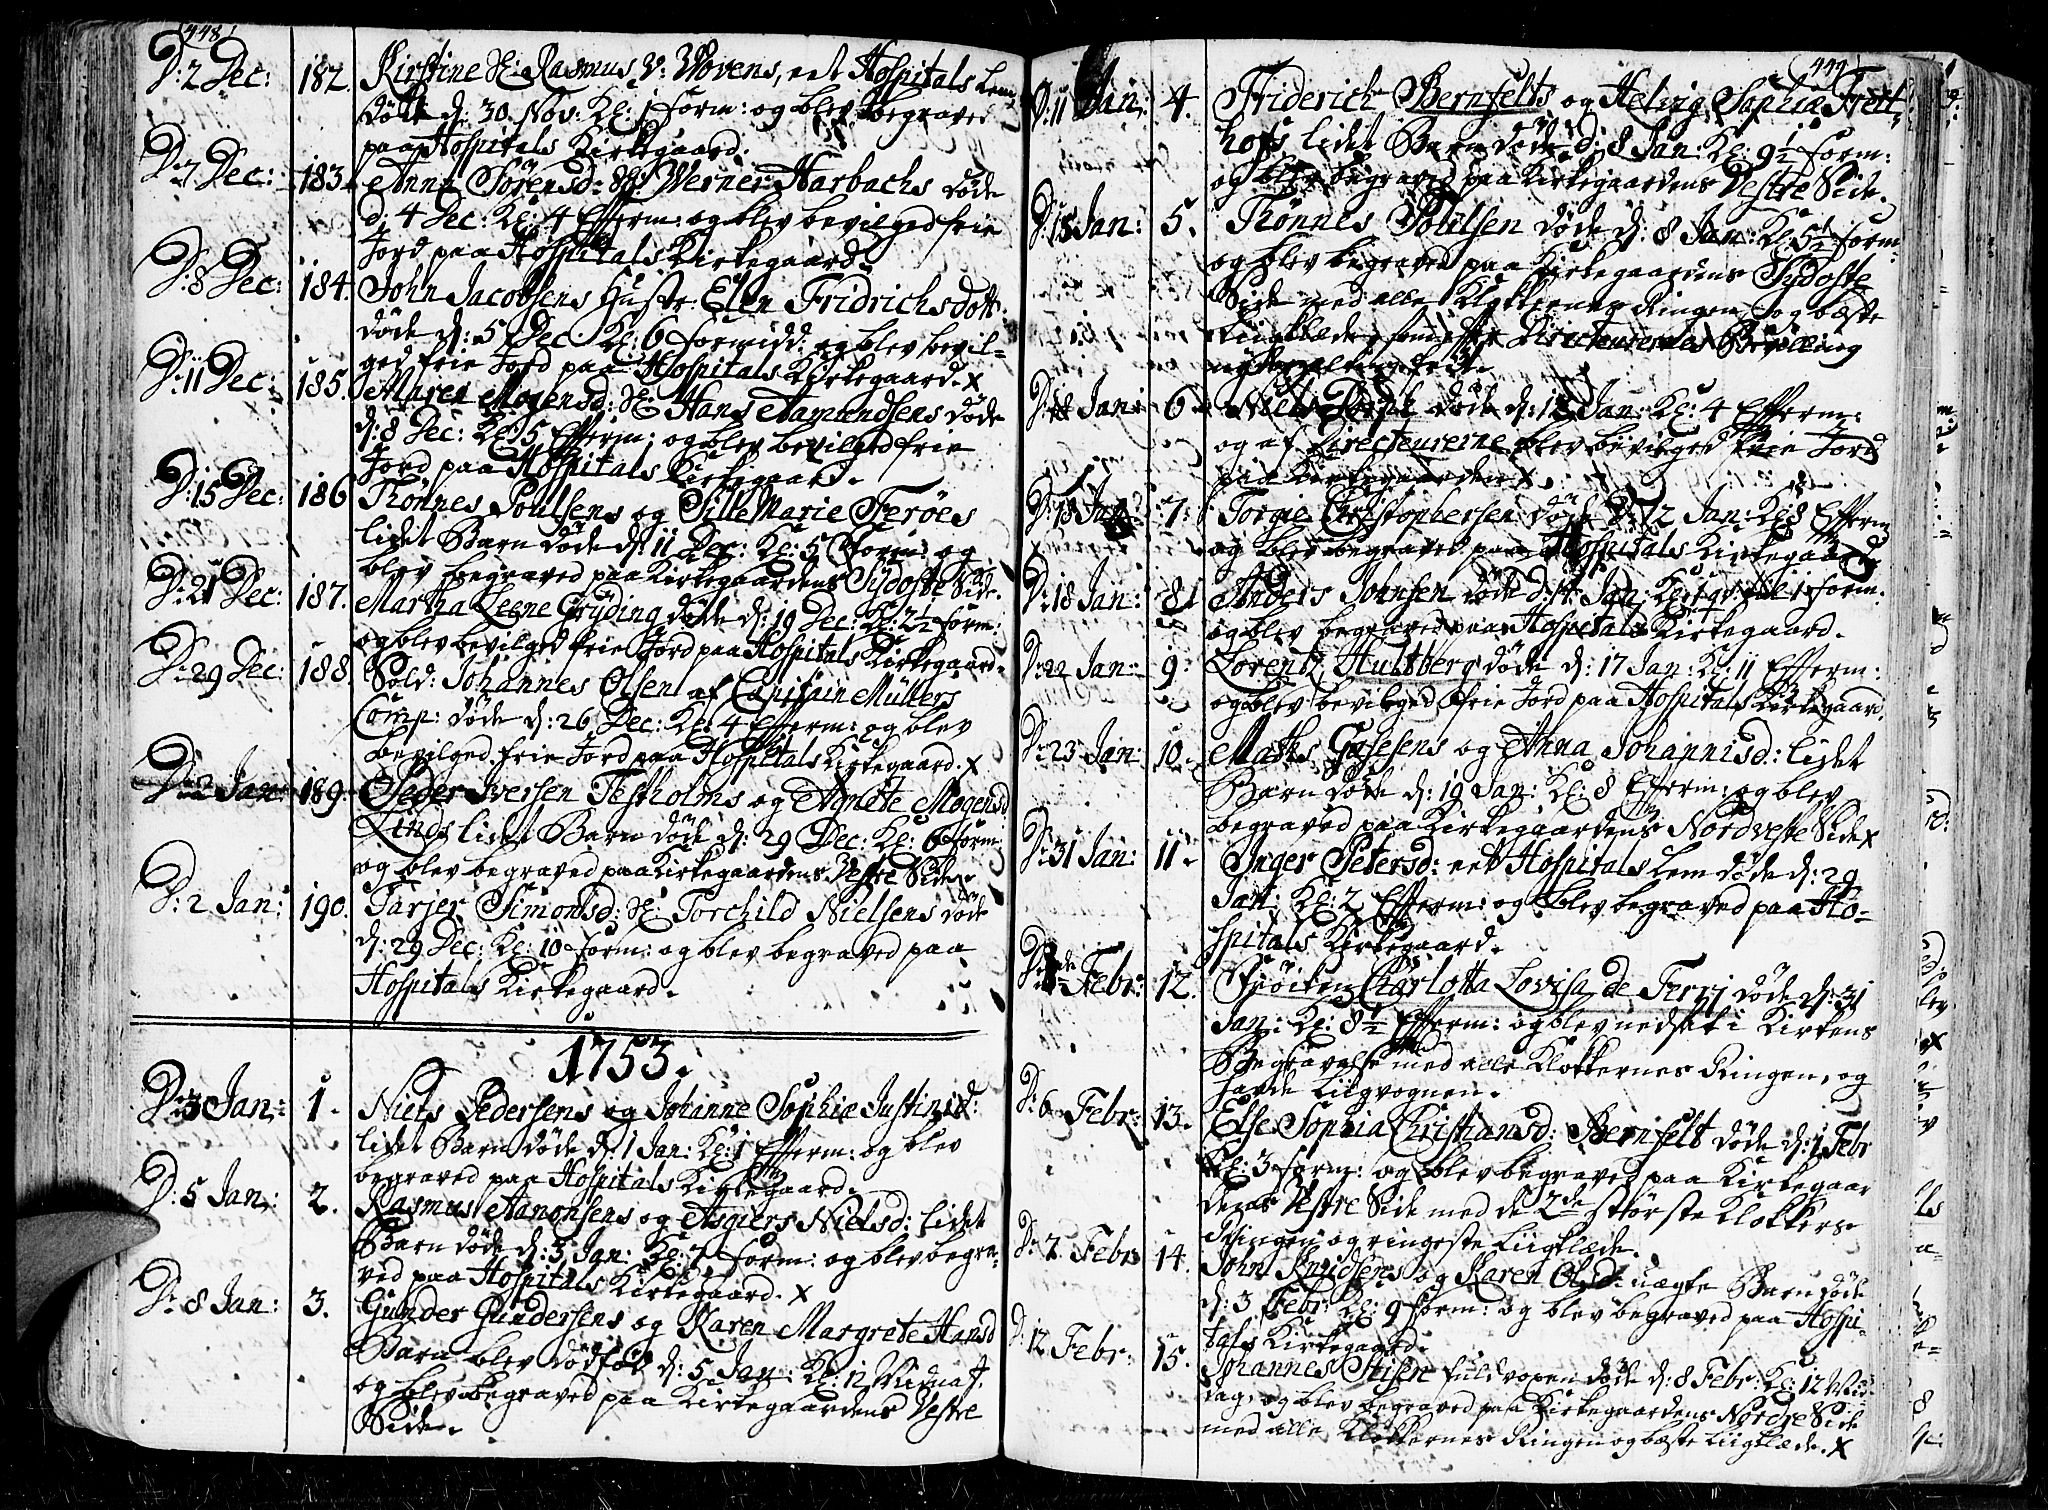 448
D: 2 Dec: 182. Kirstine Sl: Rasmus V: Wovens, eet Hospitals Lem
døde d: 30. Nov: Kl: 1 form: og blev begraved
paa Hospitals Kirkegaard.
D: 7 Dec: 183. Anne Sörensd: Werner Harbachs døde
d: 4 Dec: Kl: 4 Efterm: og blev bevilged frie
Jord paa Hospitals Kirkegaard
D: 8 Dec: 184. John Jacobsens Hustr: Elen Fridrichsdott.
døde d: 5 Dec Kl: 6 formidd: og blev bevil-
ged frie Jord paa Hospitals Kirkegaard. x
D: 11 Dec: 185. Maren Mogensd: Sl: Hans Aamundsens døde
d: 8 Dec: Kl: 5 Efterm: og blev bevilged frie
Jord paa Hospitals Kirkegaard.
D: 15 Dec: 186 Tönnes Poulsens og Sille Marie Feröes
lidet Barn døde d: 11 Dec: Kl: 5 form: og
blev begraved paa Kirkegaardens Sydoste Side.
D: 21 Dec: 187. Martha Leene Gryding døde d: 19 Dec: Kl: 2½ form:
og blev bevilged frie Jord paa Hospitals Kirkegaard.
D: 29 Dec: 188 Sold: Johannes Olsen af Capitain Müllers
Comp: døde d: 26 Dec: Kl: 4 Efterm: og blev
bevilged frie Jord paa Hospitals Kirkegaard. x
D: 2 Jan: 189. Peder Iversen Testholms og Agnete Mogensd
Linds lidet Barn døde d: 29 Dec: Kl: 6 form:
og blev begraved paa Kirkegaardens Vestre Side.
D: 2 Jan: 190. Tarjer Simonsd: Sl: Torchild Nielsens døde
d: 29 Dec: Kl: 10 form: og blev begraved paa
Hospitals Kirkegaard.
1753.
D: 3 Jan: 1. Niels Pedersens og Johanne Sophia Justinsd:
lidet Barn døde d: 1 Jan: Kl: 1 Efterm: og blev
begraved paa Hospitals Kirkegaard.
D: 5 Jan: 2. Rasmus Aanonsens og Asgiers Nielsd: lidet
Barn døde d: 3 Jan: Kl: 7 form: og blev begra-
ved paa Hospitals Kirkegaard. x
D: 8 Jan: 3. Gunder Gundersens og Karen Margrete Hansd
Barn blev dödföd d: 5 Jan: Kl: 12 Midnat.
og blev begraved paa Kirkegaardens Vestre
Side.
449
D: 11 Jan: 4. Friderich Bernfelts og Helvig Sophia Freit-
hofs lidet Barn døde d: 8 Jan: Kl: 9½ form:
og blev begraved paa Kirkegaardens Vestre Side.
D: 15 Jan: 5. Tönnes Poulsen døde d: 8 Jan: Kl: 5½ form:
og blev begraved paa Kirkegaardens Sydoste
Side med alle Klokkernes Ringen, og beste
Liigklæde, som efter Directeurernes Bevilling
D: 18 Jan: 6. døde d: 13 Jan: Kl: 4 Efterm:
og af Directeurerne blev bevilged frie Jord
paa Kirkegaarden x.
D: 18 Jan: 7. Torgie Christophersen døde d: 12 Jan: Kl: 8 Efterm
og blev begraved paa Hospitals Kirkegaard
D: 18 Jan: 8. Anders Johnsen døde d: 14 Jan: Kl: form:
og blev begraved paa Hospitals Kirkegaard.
D: 22 Jan: 9. Lorentz Hultberg døde d: 17 Jan: Kl: 11 Efterm:
og blev bevilged frie Jord paa Hospitals Kirkegaard.
D: 23 Jan 10. Maths Gasesens og Anna Johannisd: lidet
Barn døde d: 19 Jan: Kl: 8 Efterm: og blev
begraved paa Kirkegaardens Nordveste Side x
D: 31 Jan: 11. Inger Petersd: eet Hospitals Lem døde d: 29
Jan: Kl: 2 Efterm: og blev begraved paa Ho-
spitals Kirkegaard.
Febr: 12. Fröiken Charlotta Lovisa de Ferrj døde d: 31
Jan: Kl: 8½ Efterm: og blev nedsat i Kirkens
Begravelse med alle Klokkernes Ringen, og
havde Liigvognen.
D: 6 Febr: 13. Else Sophia Christiansd: Bernfelt døde d: 1 Febr
Kl: 3 form: og blev begraved paa Kirkegaar
dens Vestre Side med de 2de störste Klokkers
Ringen og ringeste Liigklæde.
D: 7 Febr: 14. John Knudsens og Karen Olsd: uægte Barn døde
d: 3 Febr: Kl: 9 form: og blev begraved paa Hospi-
tals Kirkegaard.
D: 12 Febr: 15. Johannes Stisen fuldvoxen døde d: 8 Febr: Kl: 12 Mid-
dag, og blev begraved paa Kirkegaardens Nordre Side
med alle Klokkernes Ringen og beste Liigklæde. x